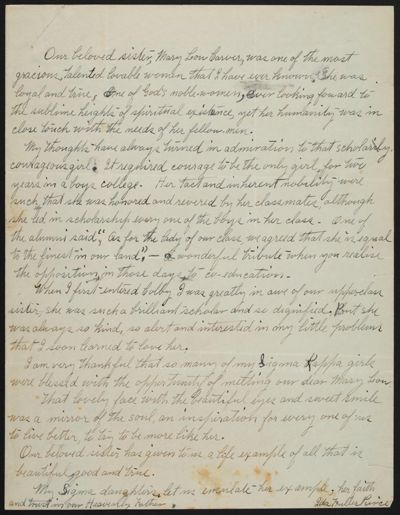 Our beloved sister, Mary Low Carver, was one of the most
gracious, talented lovable women that I have ever known. She was
loyal and true, One of God's noble women, Ever looking forward to
the sublime heights of spiritual existence, yet her humanity was in
close touch with the needs of her fellow men.
My thoughts have always turned in admiration to that scholarly,
courageous girl. It required courage to be the only girl for two
years in a boys college. Her tact and inherent nobility were
such that she was honored and revered by her classmates, although
she led in scholarship every one of the boys in her class. One of
the alumni said, "As for the lady of our class we agreed that she is equal
to the finest in our land", - A wonderful tribute when you realize
the opposition in those days to co-education.
When I first entered Colby, I was greatly in awe of our upperclass
sister, she was such a brilliant scholar and so dignified. But she
was always so kind, so alert and interested in my little problems
that I soon learned to love her.
I am very thankful that so many of my Sigma Kappa girls
were blessed with the opportunity of meeting our dear Mary Low.
That lovely face with the beautiful eyes and sweet smile
was a mirror of the soul, an inspiration for every one of us
to live better, to try to be more like her.
Our beloved sister has given to us a life example of all that is
beautiful, good and true.
My Sigma daughters, let us emulate her example, her faith
and trust in our Heavenly Father.
Ida Fuller Pierce